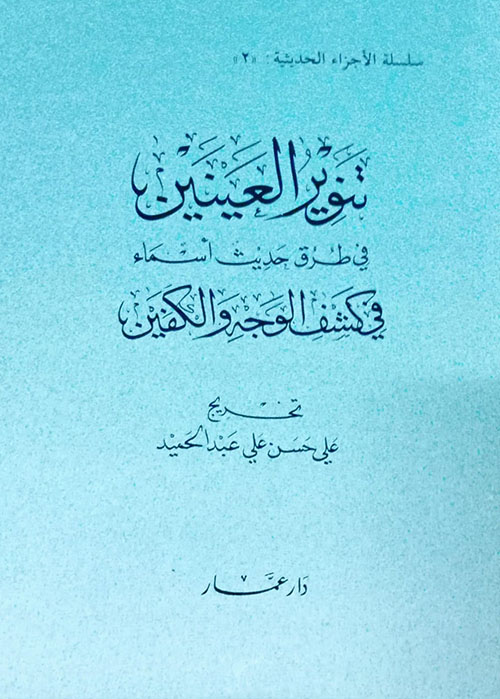 سلسلة الأجزاء الحديثية: «٢»
تَنْوِيرُ العَيْنَيْن
في طُرُق حَدِيث أسْمَاء
في كَشْفِ الوَجْهِ وَالكَفَّيْن
تخريج
علي حسن علي عبد الحميد
دَار عمَّار